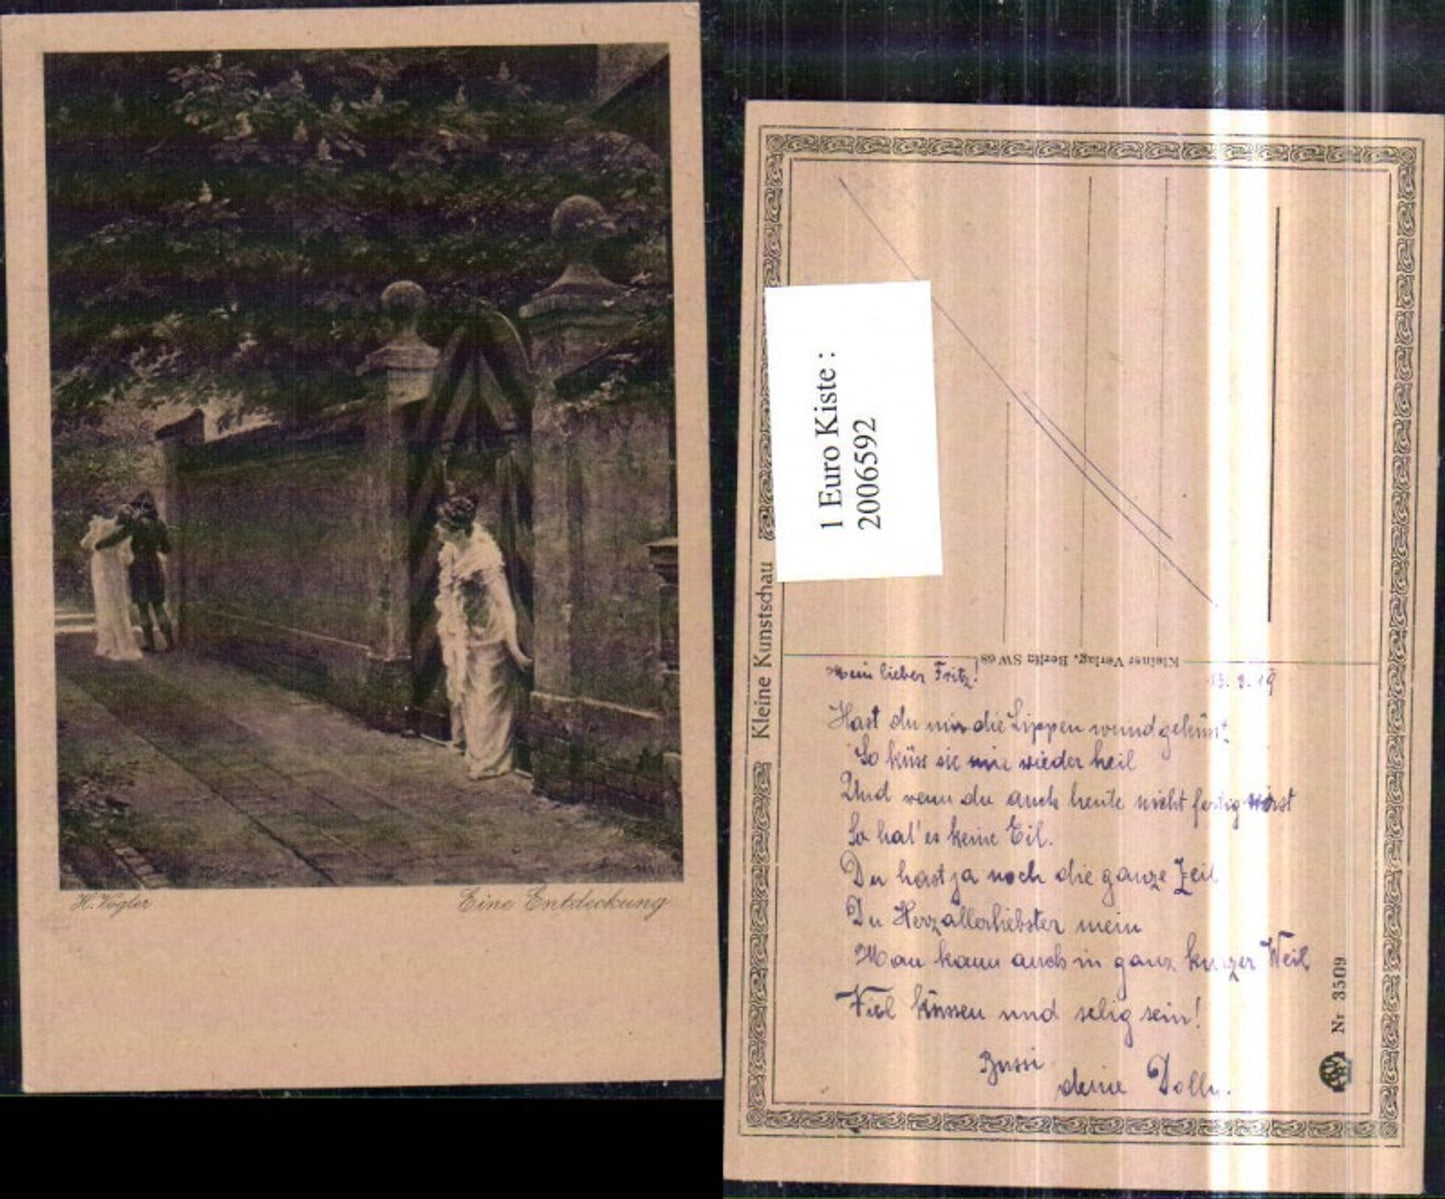 H. Vogler
Eine Entdeckung
1 Euro Kiste :
2006592
Kleine Kunstschau
Kleiner Verlag, Berlin SW 68
Mein lieber Fritz!
13. 3. 19
Hast du mir die Lippen wund geküsst
So küss sie mir wieder heil
Und wenn du auch heute nicht fertig wirst
So hat's keine Eil.
Du hast ja noch die ganze Zeit
Du Herzallerliebster mein
Man kann auch in ganz kurzer Weil
Viel küssen und selig sein!
Bussi
deine Dolly.
Nr 3509